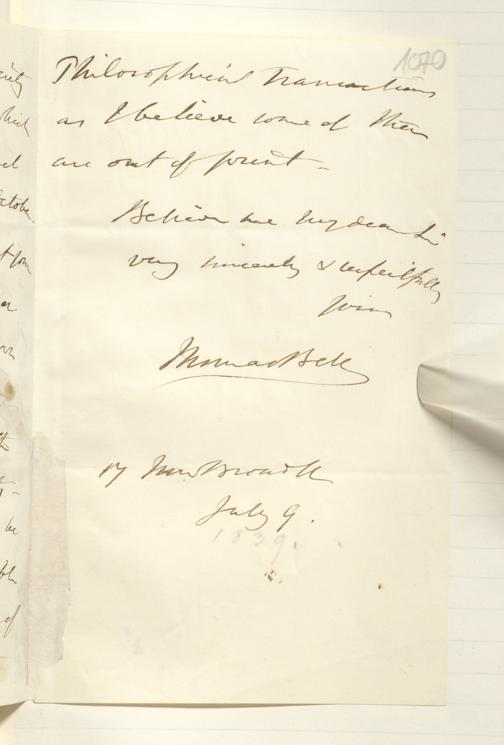 1070
Philosophical Transactions
as I believe some of them
are out of print -
Believe me my dear Sir
very sincerely & respectfully
Yours
Thomas Bell
17 New Broad St
July 9.
1839.